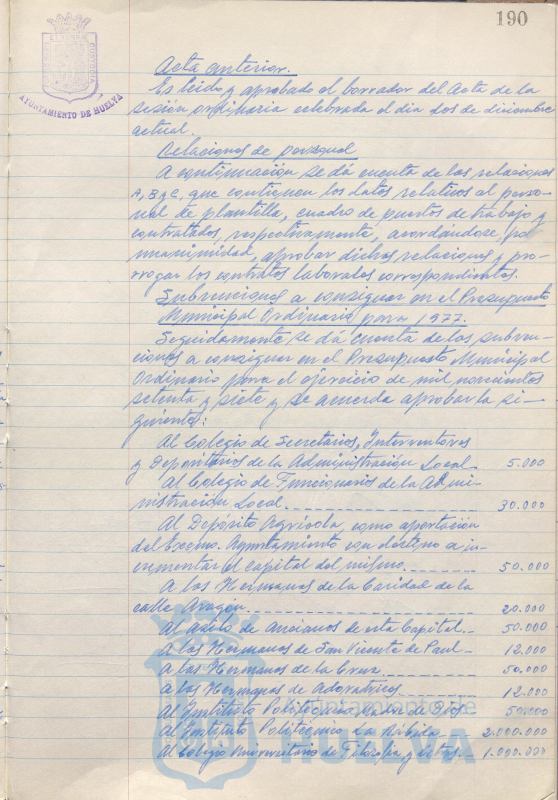 190
AYUNTAMIENTO DE HUELVA
Acta anterior.
Es leido y aprobado el borrador del Acta de la
sesión ordinaria celebrada el dia dos de diciembre
actual.
Relaciones de personal
A continuación se dá cuenta de las relaciones
A, B y C, que contienen los datos relativos al perso-
nal de plantilla, cuadro de puestos de trabajo y
contratados, respectivamente, acordándose, por
unanimidad, aprobar dichas relaciones y pro-
rrogar los contratos laborales correspondientes.
Subvenciones a consignar en el Presupuesto
Municipal Ordinario para 1977.
Seguidamente se dá cuenta de las subven-
ciones a consignar en el Presupuesto Municipal
Ordinario para el ejercicio de mil novecientos
setenta y siete y se acuerda aprobar la si-
guientes:
Al Colegio de Secretarios, Interventores
y Depositarios de la Administración Local - 5.000
Al Colegio de Funcionarios de la Admi-
nistración Local. 30.000
Al Depósito Agrícola, como aportación
del Excmo. Ayuntamiento con destino a in-
crementar el capital del mismo. 50.000
A las Hermanas de la Caridad de la
calle Aragón. 20.000
Al Asilo de Ancianos de esta Capital. - 50.000
A las Hermanas de San Vicente de Paul - 12.000
A las Hermanas de la Cruz 50.000
A las Hermanas de Adoratrices 12.000
Al Instituto Politécnico Madre de Dios 50.000
Al Instituto Politécnico La Rábida - 2.000.000
Al Colegio Universitario de Filosofia y Letras. - 1.000.000
Ayuntamiento de
HUELVA